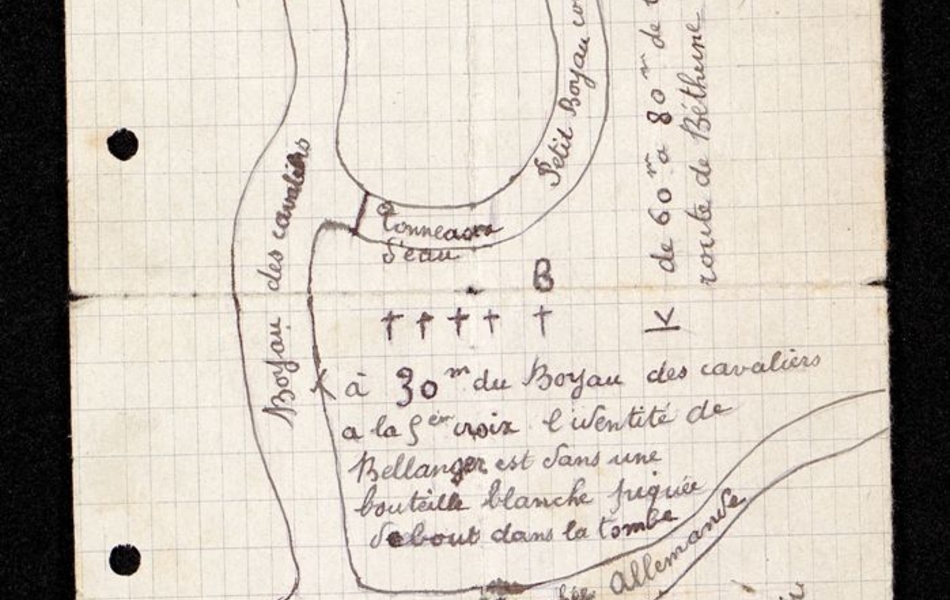 Boyau des cavaliers
Petit Boyau
de 60 m a 80 m de
route de Béthune
Tonneaux
d'eau
B
à 30 m du Boyau des cavaliers
a la 5èm croix l'identité de
Bellanger est dans une
bouteille blanche piquée
debout dans la tombe
Allemande